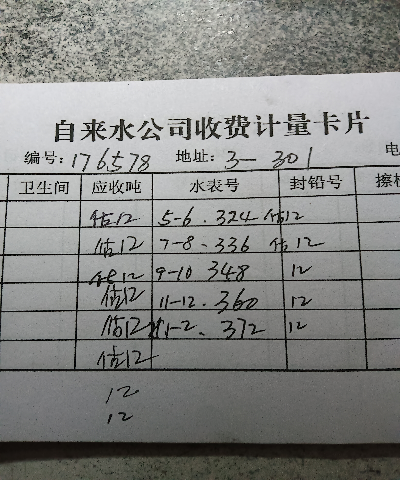 自来水公司收费计量卡片
编号:176578 地址:3-301 电
卫生间 应收吨 水表号 封铅号 擦
估12 5-6.324 估12
估12 7-8-336 估12
估12 9-10 348 12
估12 11-12.360 12
估12 1-2.372 12
估12
12
12